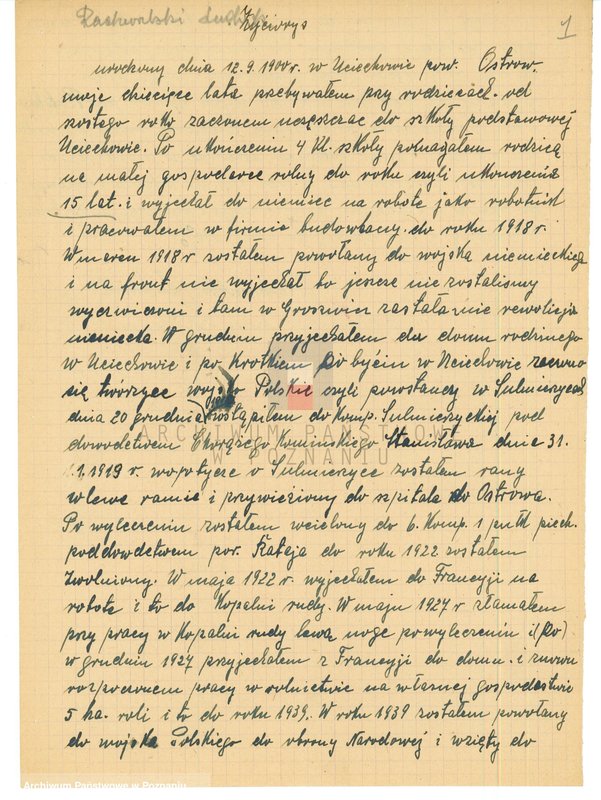 Raszewski Ludwik
Życiorys
1
urodzony dnia 12.9.1900r. w Uciechowie pow. Ostrow.
moje dziecięce lata przebywałem przy rodzicach. od
szóstego roku zaczołem uczęszczac do szkoły podstawowej
Uciechowie. Po ukończeniu 4 kl. szkoły pomagałem rodzicą
na małej gospodarce rolny do roku czyli ukonczenia
15 lat. i wyjechał do niemiec na robote jako robotnik
i pracowałem w firmie budowlany. do roku 1918 r.
W marcu 1918 r zostałem powołany do wojska niemieckiego
i na front nie wyjechał bo jescze nie zostalismy
wycwiczoni i tam w zastała mie rewolucja
niemiecka. W grudniu przyjechałem do domu rodzinego
w Uciechowie i po krotkiem pobyciu w Uciechowie
się tworzyce wojsko Polskie czyli powstancy w Sulmierzycach
dnia 20 grudnia wstąpiłem do Komp. Sulmierzyckiej pod
dowodctwem Chorążego Kominskiego Stanisława dnia 31.
1.1919 r. w potyczce o Sulmierzyce zostałem rany
w lewe ramie i przywieziony do szpitala do Ostrowa.
Po wyleczeniu zostałem wcielony do 6. Komp. 1 pułk piech.
pod dowdctwem por. Rataja do roku 1922 zostałem
zwolniony. W maja 1922 r. wyjechałem do Francyji na
robote i to do Kopalni rudy. W maju 1927 r złamałem
przy pracy w Kopalni rudy lewą noge po wyleczeniu i (po)
w grudniu 1927 przyjechałem z Francyji do domu. i znowu
rozpoczołem pracy w rolnictwie na własnej gospodarstwie
5 ha. roli i to do roku 1939. W roku 1939 zostałem powołany
do wojska Polskiego do obrony Narodowej i wzięty do
ARCHIWUM PAŃSTWOWE
W POZNANIU
Archiwum Państwowe w Poznaniu